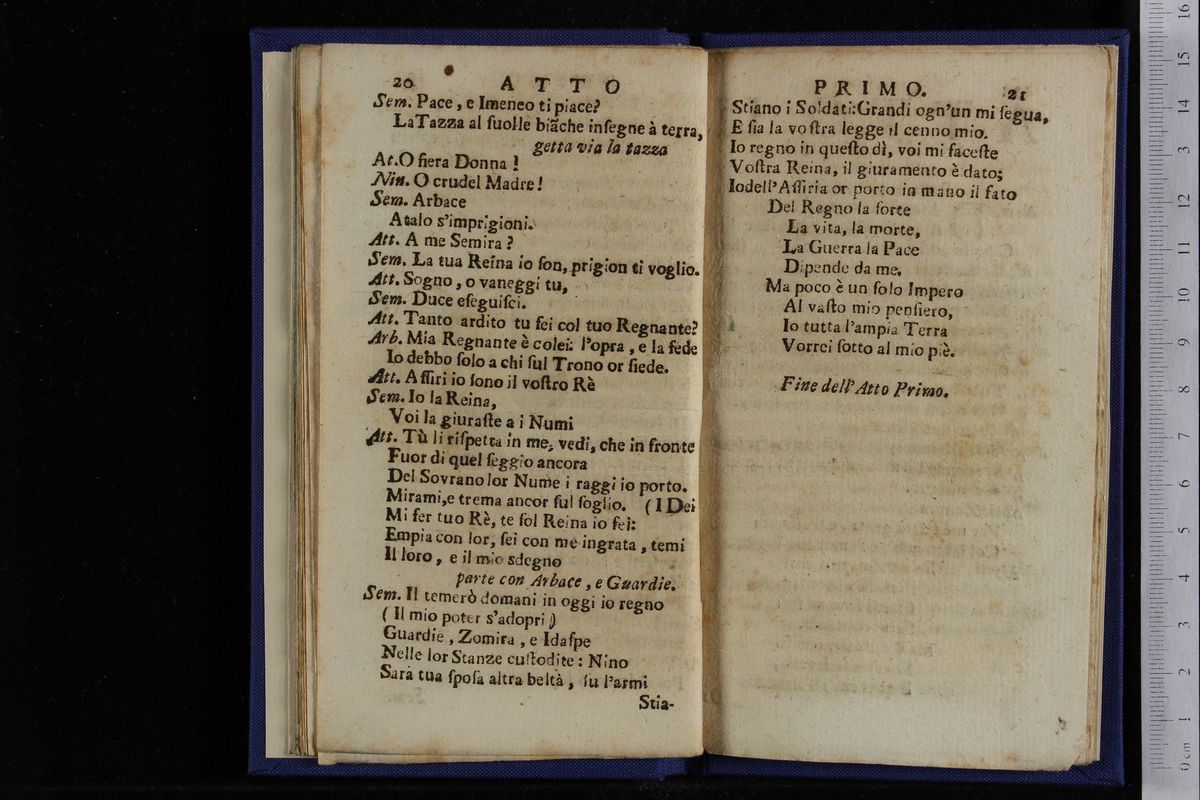 20 ATTO
Sem. Pace, e Imeneo ti piace?
La Tazza al suolle biãche insegne à terra,
getta via la tazza
At. O fiera Donna!
Nin. O crudel Madre!
Sem. Arbace
Atalo s'imprigioni.
Att. A me Semira?
Sem. La tua Reina io son, prigion ti voglio.
Att. Sogno, o vaneggi tu,
Sem. Duce eseguisci.
Att. Tanto ardito tu sei col tuo Regnante?
Arb. Mia Regnante è colei: l'opra, e la fede
Io debbo solo a chi sul Trono or siede.
Att. Assiri io sono il vostro Rè
Sem. Io la Reina,
Voi la giuraste a i Numi
Att. Tù li rispetta in me, vedi, che in fronte
Fuor di quel seggio ancora
Del Sovrano lor Nume i raggi io porto.
Mirami, e trema ancor sul soglio. (I Dei
Mi fer tuo Rè, te sol Reina io fei:
Empia con lor, sei con me ingrata, temi
Il loro, e il mio sdegno
parte con Arbace, e Guardie.
Sem. Il temerò domani in oggi io regno
(Il mio poter s'adopri)
Guardie, Zomira, e Idaspe
Nelle lor Stanze custodite: Nino
Sarà tua sposa altra beltà, su l'armi
Stia-
PRIMO. 21
Stiano i Soldati: Grandi ogn'un mi segua,
E sia la vostra legge il cenno mio.
Io regno in questo dì, voi mi faceste
Vostra Reina, il giuramento è dato;
Io dell'Assiria or porto in mano il fato
Del Regno la sorte
La vita, la morte,
La Guerra la Pace
Dipende da me.
Ma poco è un solo Impero
Al vasto mio pensiero,
Io tutta l'ampia Terra
Vorrei sotto al mio piè.
Fine dell'Atto Primo.
0 cm 1 2 3 4 5 6 7 8 9 10 11 12 13 14 15 16